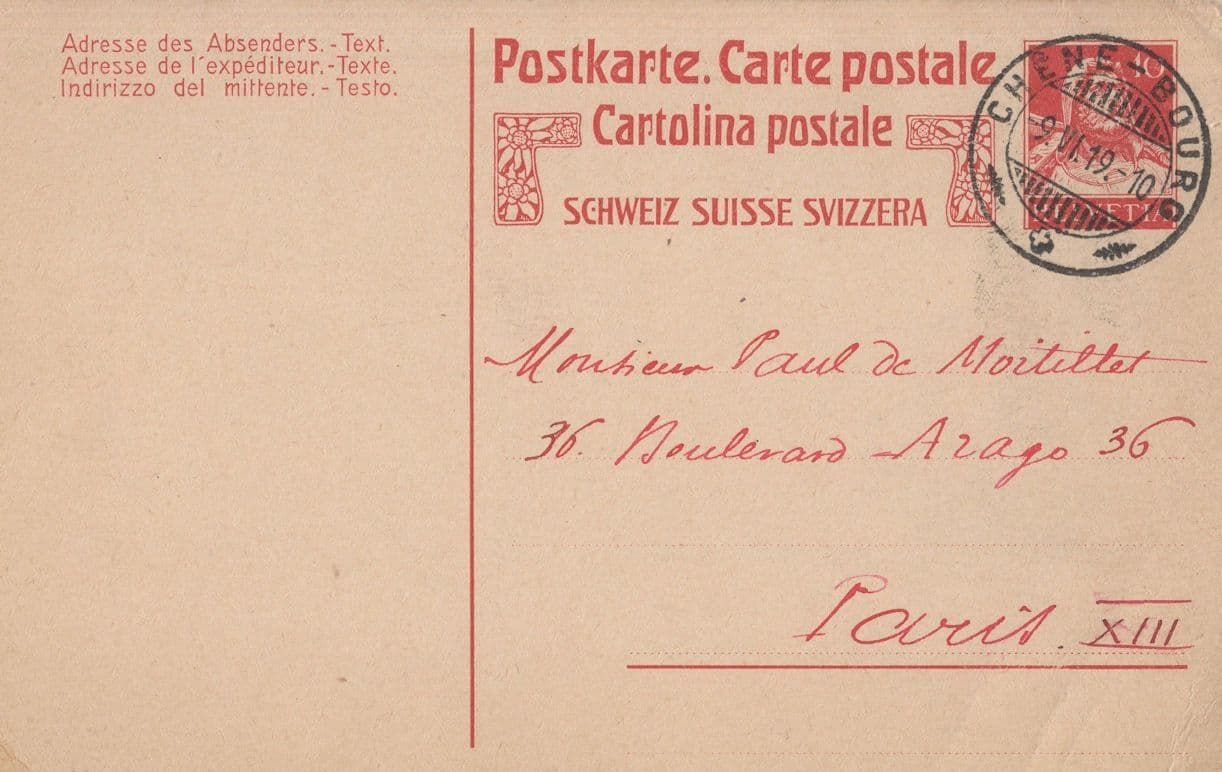 Adresse des Absenders.-Text.
Adresse de l'expéditeur.-Texte.
Indirizzo del mittente.-Testo.
Postkarte. Carte postale
Cartolina postale
SCHWEIZ SUISSE SVIZZERA
10
HELVETIA
CHÊNE-BOURG
-9.VI.19.-10
Monsieur Paul de Mortillet
36. Boulevard Arago 36
Paris. XIII